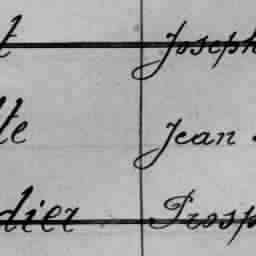 t Joseph
te Jean
dier Prosp